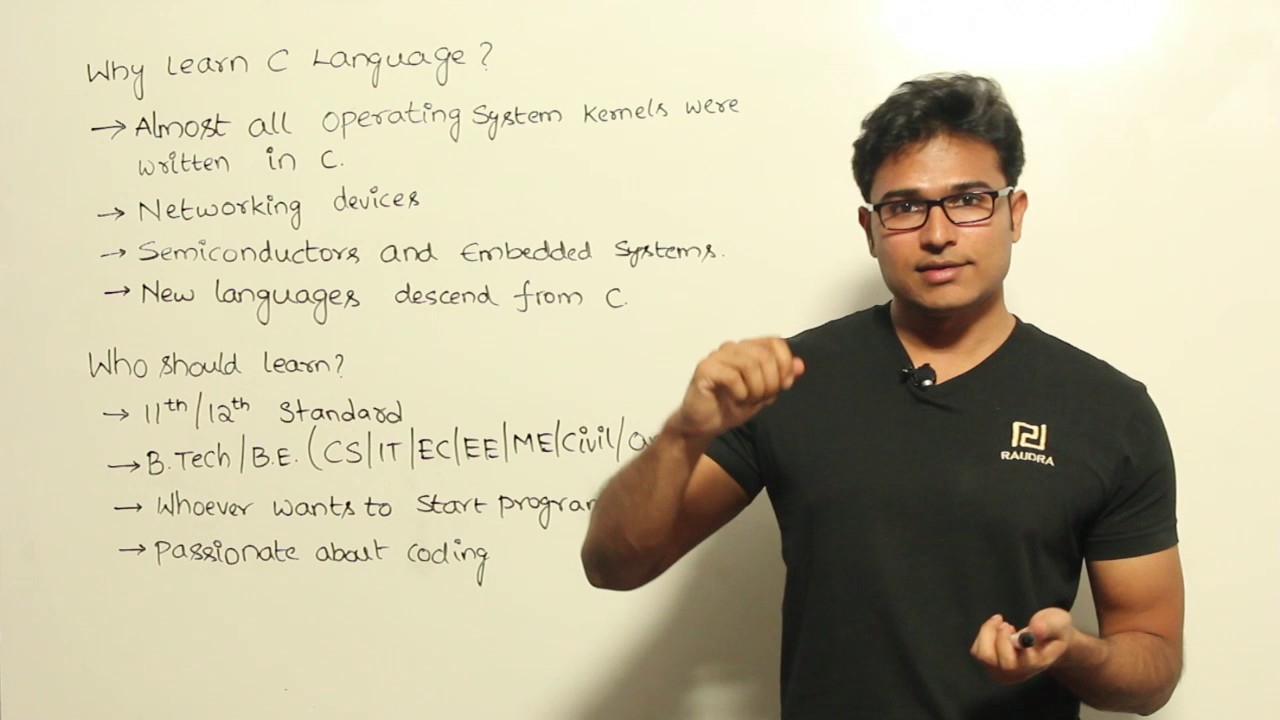 Why Learn C Language?
→ Almost all operating System kernels were
written in C.
→ Networking devices
→ Semiconductors and Embedded Systems.
→ New languages descend from C.
Who should learn?
→ 11th/12th Standard
→ B.Tech/B.E. (CS|IT|EC|EE|ME|Civil/
→ Whoever wants to start
→ Passionate about coding
RAUDRA